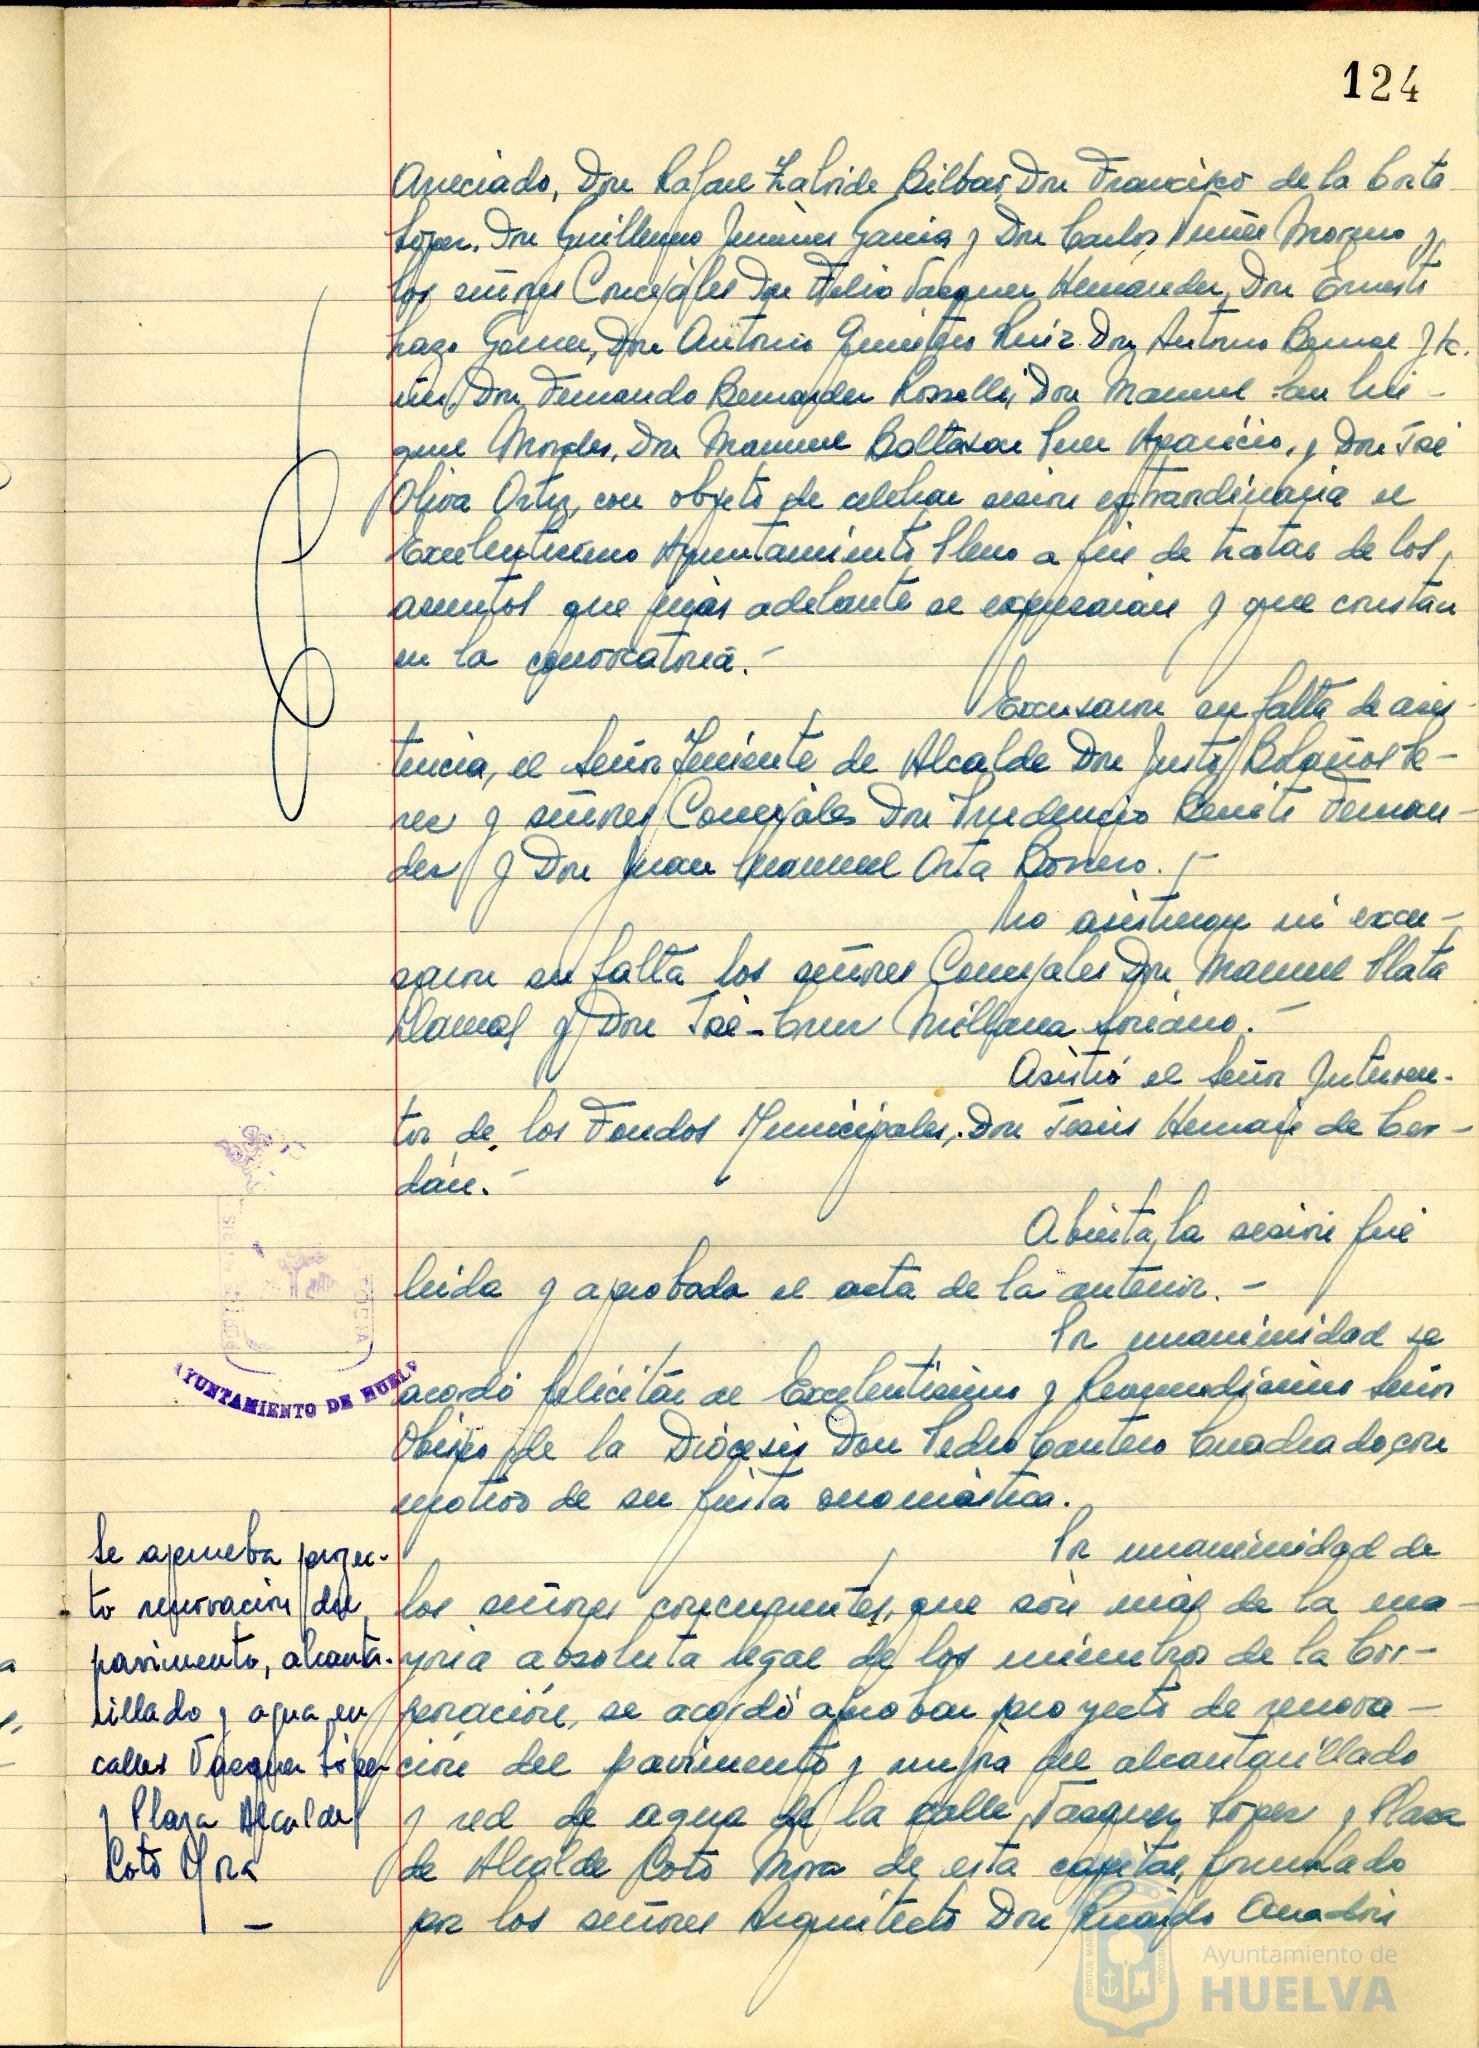 124
Don Rafael Zalvide Bilbao, Don Francisco de la Corte
López, Don Guillermo Jiménez García y Don Carlos Núñez Moreno y
los señores Concejales Don Vázquez Hernández, Don Ernesto
Lazo Gómez, Don Antonio Quintero Ruiz Don Antonio Bernal
Don Fernando Bernáldez Rosselló, Don Manuel
Morales, Don Manuel Baltasar Pérez Aparicio, y Don José
Oliva Ortiz, con objeto de celebrar sesión extraordinaria el
Excelentísimo Ayuntamiento Pleno a fin de tratar de los
asuntos que más adelante se expresarán y que constan
en la convocatoria.-
Excusaron su falta de asis-
tencia, el Señor Teniente de Alcalde Don Justo Bolaños Pe-
rez y señores Concejales Don Prudencio Benito Fernan-
dez y Don Juan Manuel Orta Borrero.-
No asistieron ni excu-
saron su falta los señores Concejales Don Manuel Plata
Llamas y Don José-Cruz Millana Soriano.-
Asistió el Señor Interven-
tor de los Fondos Municipales, Don Jesús Hernaiz de Cer-
dán.-
Abierta la sesión fué
leida y aprobada el acta de la anterior.-
Por unanimidad se
acordó felicitar al Excelentísimo y Reverendísimo Señor
Obispo de la Diócesis Don Pedro Cantero Cuadrado, con
motivo de su fiesta onomástica.
Por unanimidad de
los señores concurrentes, que son más de la ma-
yoria absoluta legal de los miembros de la Cor-
poración, se acordó aprobar proyecto de renova-
ción del pavimento y mejora del alcantarillado
y red de agua de la calle Vazquez López y Plaza
de Alcalde Coto Mora de esta capital, formulado
por los señores Arquitecto Don Ricardo Anadón
Se aprueba proyec-
to renovación del
pavimento, alcanta-
rillado y agua en
calles Vazquez López
y Plaza Alcalde
Coto Mora
AYUNTAMIENTO DE HUELVA
Ayuntamiento de
HUELVA